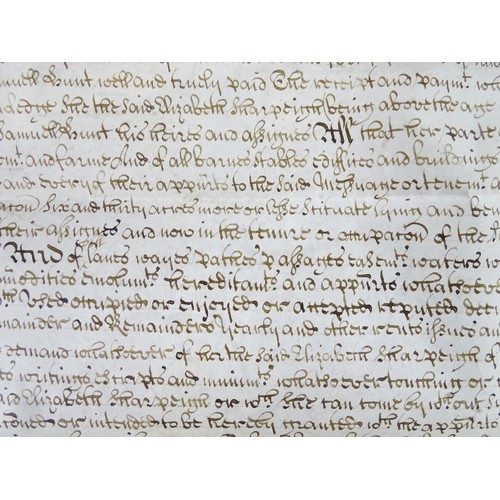 muell Hunt well and truely paid The receipt and paymt. wh
ledge She the said Elizabeth Sharpeigh being above the age
Samuell Hunt his heires and assignes All that her parte
emt. and farme And of all barnes stables edifices and buildings
and every of their appurts to the said Messuage or tenemt.
Six and thirty acres more or lesse Scituate lying and be
their assignes and now in the tenure or occupacon of the
And of lanes wayes pathes passages easemts. waters wa
modities emolumts. hereditamts. and appurts whatsoever
Used occupied or enjoyed or accepted reputed dee
mainder and Remainders Yearly and other rents issues and
demand whatsoever of her the said Elizabeth Sharpeigh of
writings escripts and minimts. whatsoever touching or
Elizabeth Sharpeigh or wch. She can come by wth.out Su
coned or intended to be hereby granted wth. the appurts to